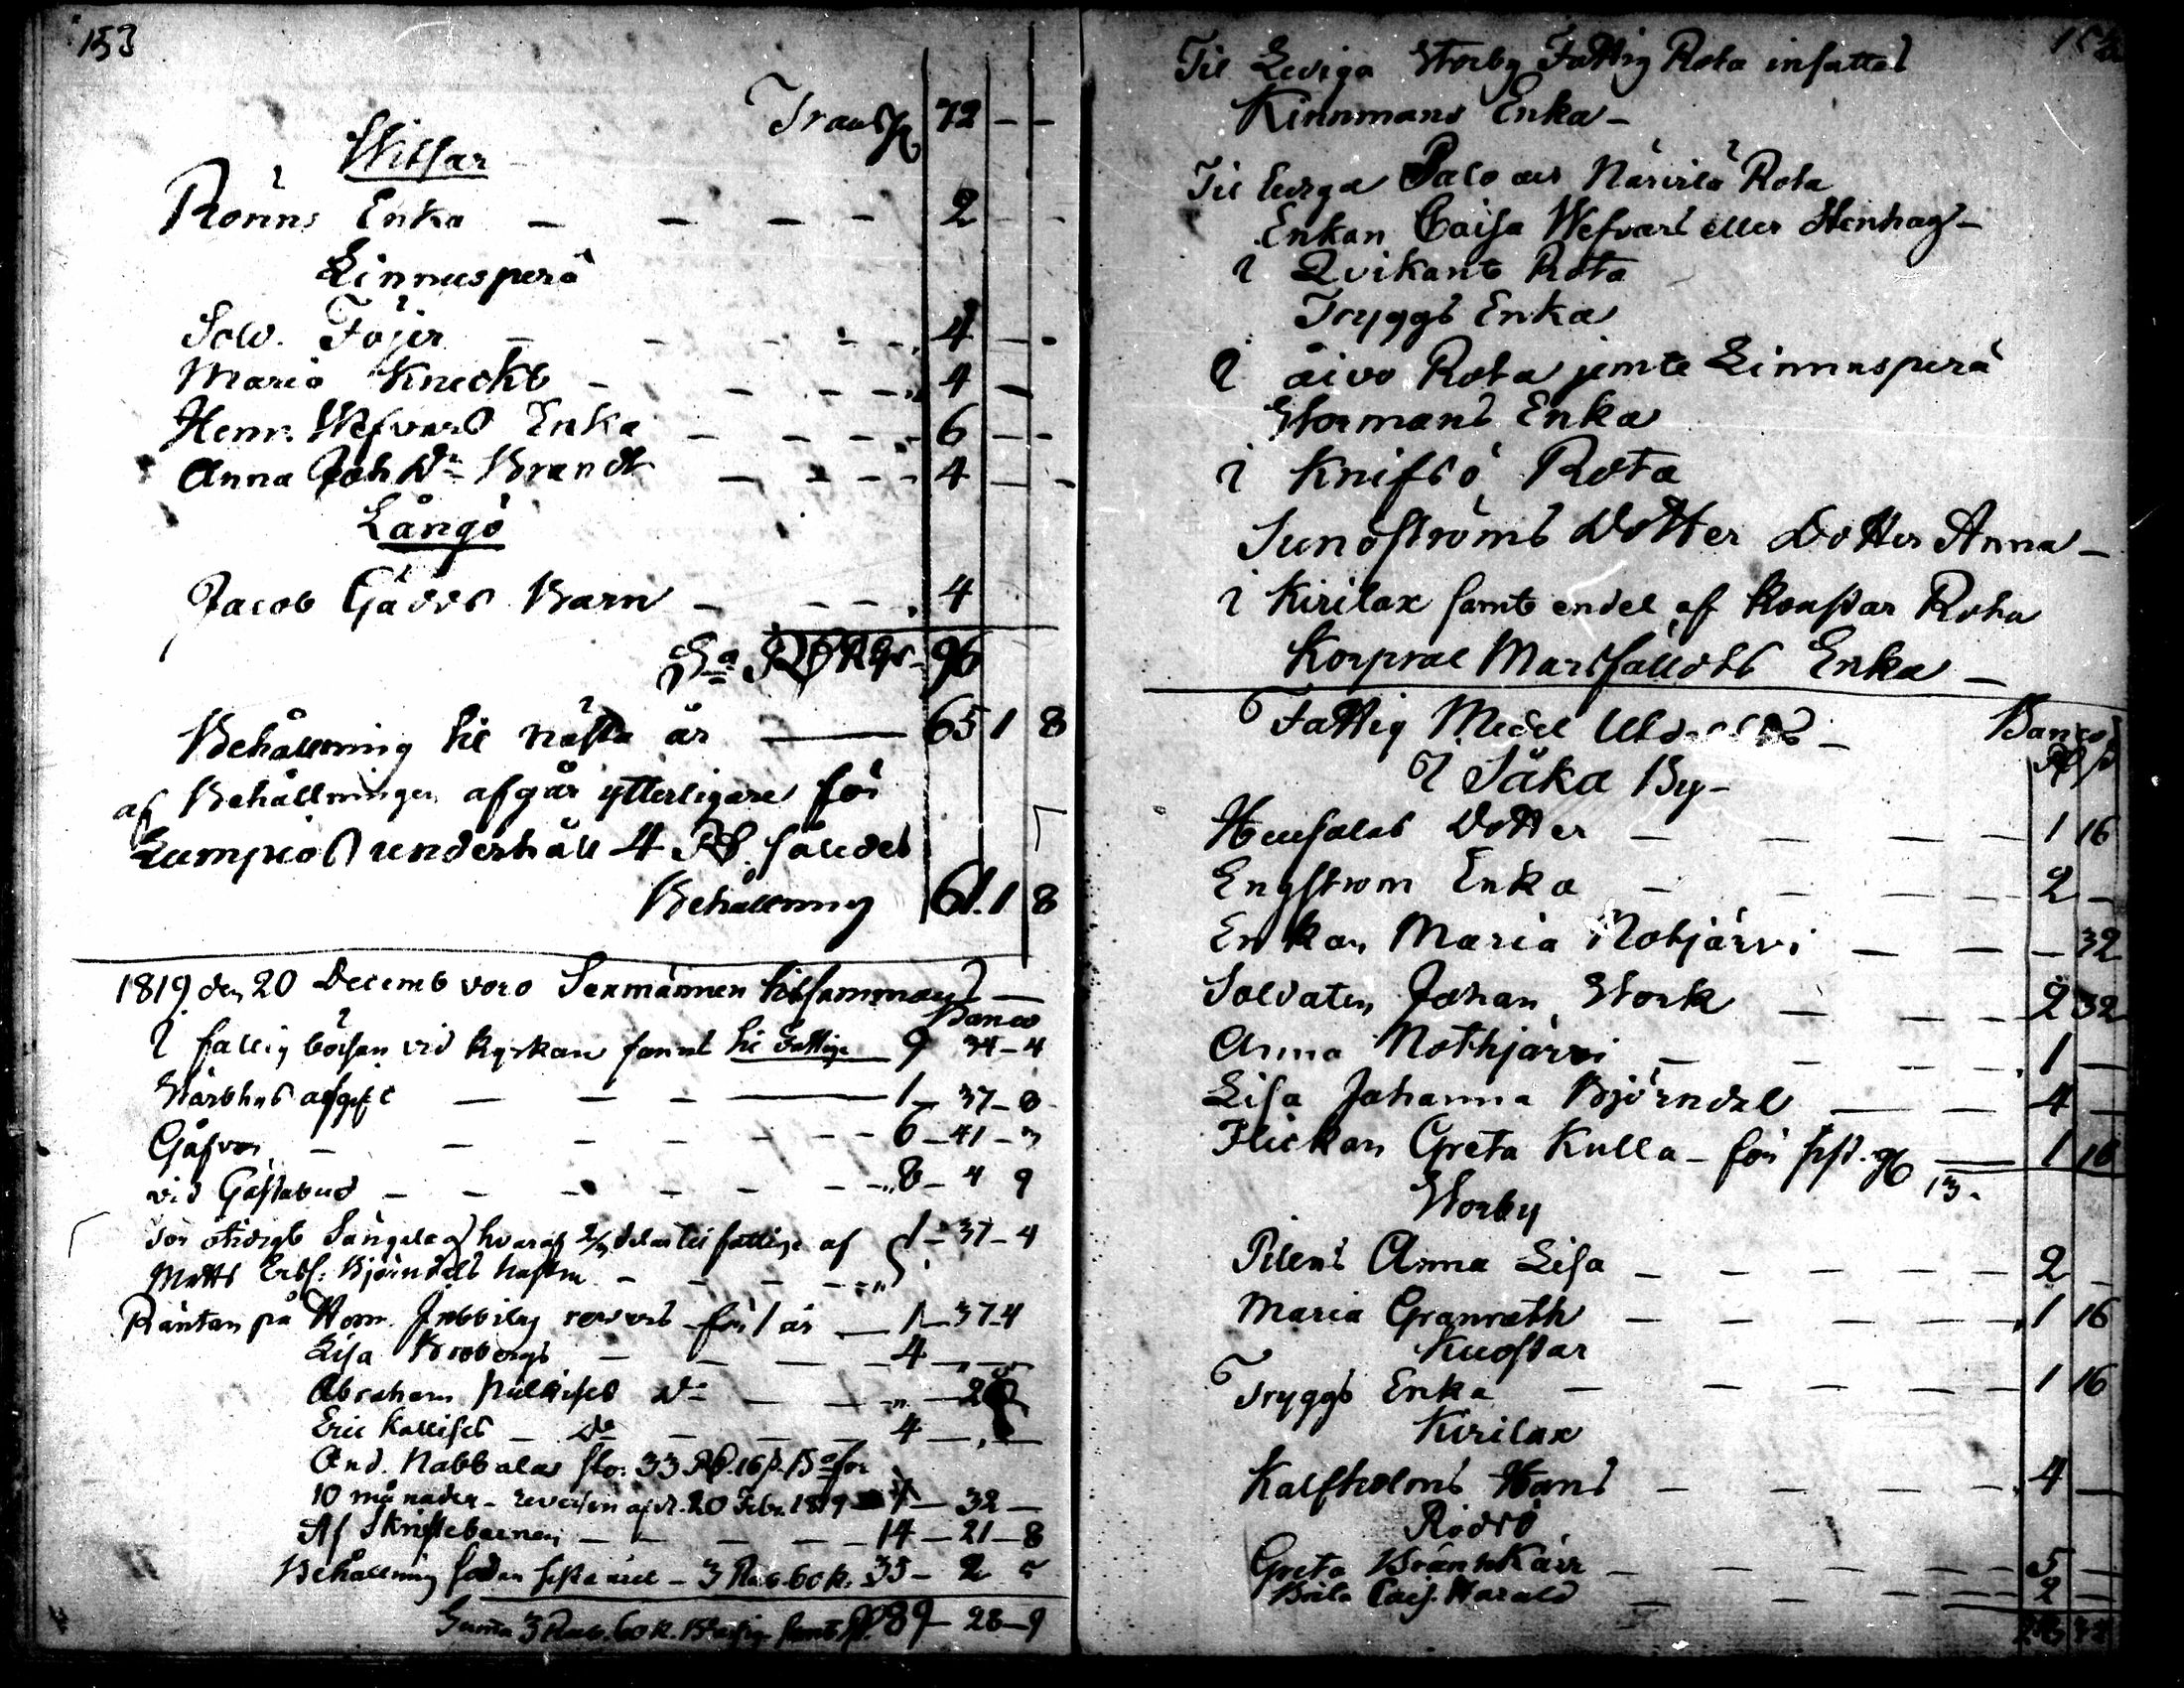 153
Transp 72 - -
Witsar
Rönns Enka - - - - 2 - -
Linnusperä
Sold. Föjer - - - - 4 - -
Maria Kneckt - - - - 4 -
Henr. Wefvars Enka - - - - 6 - -
Anna Joh Dr Brandt - - - - 4 - -
Långö
Jacob Gädds Barn - - - 4
Sa Rd Rgs - 96
Behållning til nästa år — 65 1 8
af Behållningen afgår ytterligare för
Lumpios underhåll 4 Rd. således
Behållning 61. 1 8
1819 den 20 Decemb voro Sexmännen tilsammans —
Banco
I fattig bössan vid kyrkan fanns til Fattige 9 34 - 4
Stärbhus afgift — — — 1 - 37 - 8
Gåfvor - - - - - 6 - 41 - 3
vid Gästabud - - - - - 8 - 4 9
för otidigt Sängelag hvaraf 2/3 delar til fattige af 1 - 37 - 4
Matts Erss. Björndals hustru - - - -
Räntan på Hom. Jobbilas revers för 1 år — 1 - 37 - 4
Lisa Brobergs - - - 4 -
Abraham Pulkises Do - - -
Eric Kallises - Do - - 4 -
And. Nabbalas sto. 33 Rd. 16 s. Bo för
10 månader - reversen af d. 20 Febr. 1819 1 - 32 -
Af Skriftebarnen - - - 14 - 21 - 8
Behållning sedan sista året - 3 Rub. 60 k. 35 - 2 5
Summa 3 Rub. 60 k. B. assign. samt Rd. 89 - 28 - 9
Til Lediga Storby Fattig Rota insattes
Kinnmans Enka -
Til lediga Palo als Närvilä Rota
Enkan Caisa Wefvars eller Stenhag -
I Qvikant Rota
Tryggs Enka
I äivo Rota jemte Linnusperä
Stormans Enka
I Knifsö Rota
Sundströms Dotter Dotter Anna -
I Kirilax samt endel af Kousar Rota
Korpral Marsfälldts Enka -
Fattig Medel - Banco
Rd s
I Såka By -
Hensalas Dotter - - - 1 16
Engström Enka - - - 2 -
Enkan Maria Notjärvi - - - 32
Soldaten Johan Stork - - - 2 32
Anna Nothjärvi - - - 1 -
Lisa Johanna Björndal - - 4 -
Flickan Greta Kulla - för sist. 13. - 1 16
Storby
Pilens Anna Lisa - - - - 2 -
Maria Granroth - - - - 1 16
Kuostar
Tryggs Enka - - - - 1 16
Kirilax
Kalfholms Hans - - - - 4 -
Rödsö
Greta Brännkärr - - - - 5 -
Brita Caisa Harald - - - 2 -